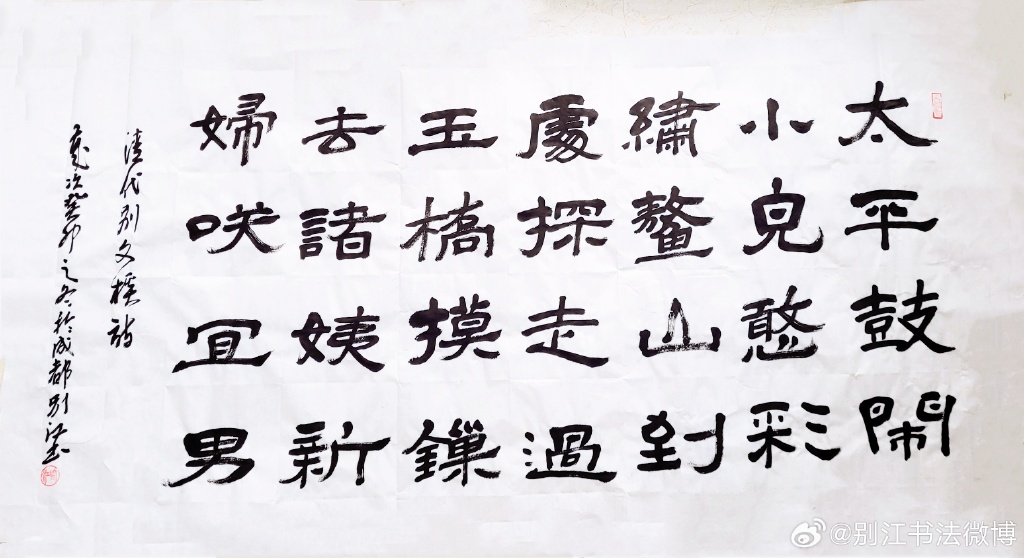 太平鼓鬧
小兒憨彩
繡鰲山到
處探走過
玉橋摸鏁
去諸姨新
婦咲宜男
清代别文榡詩
歲次癸卯之冬於成都别江書
@别江书法微博